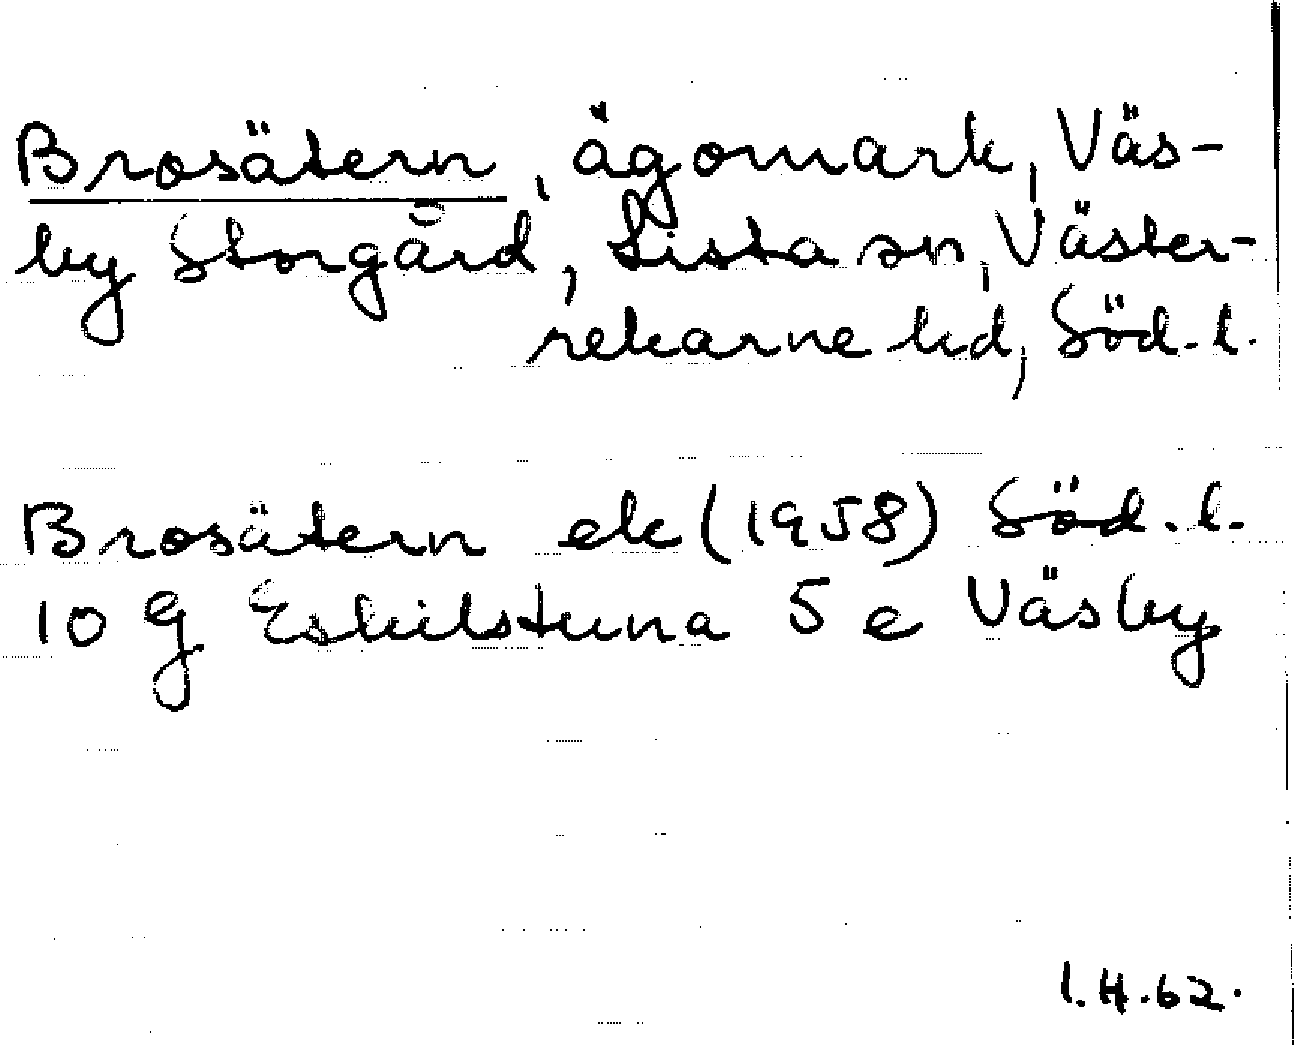 Brosätern, ägomark, Väs-
by Storgård, Lista sn, Väster-
rekarne hd, Söd. l.
Brosätern ek (1958) Söd. l.
10 g Eskilstuna 5 e Väsby
I.H.62.